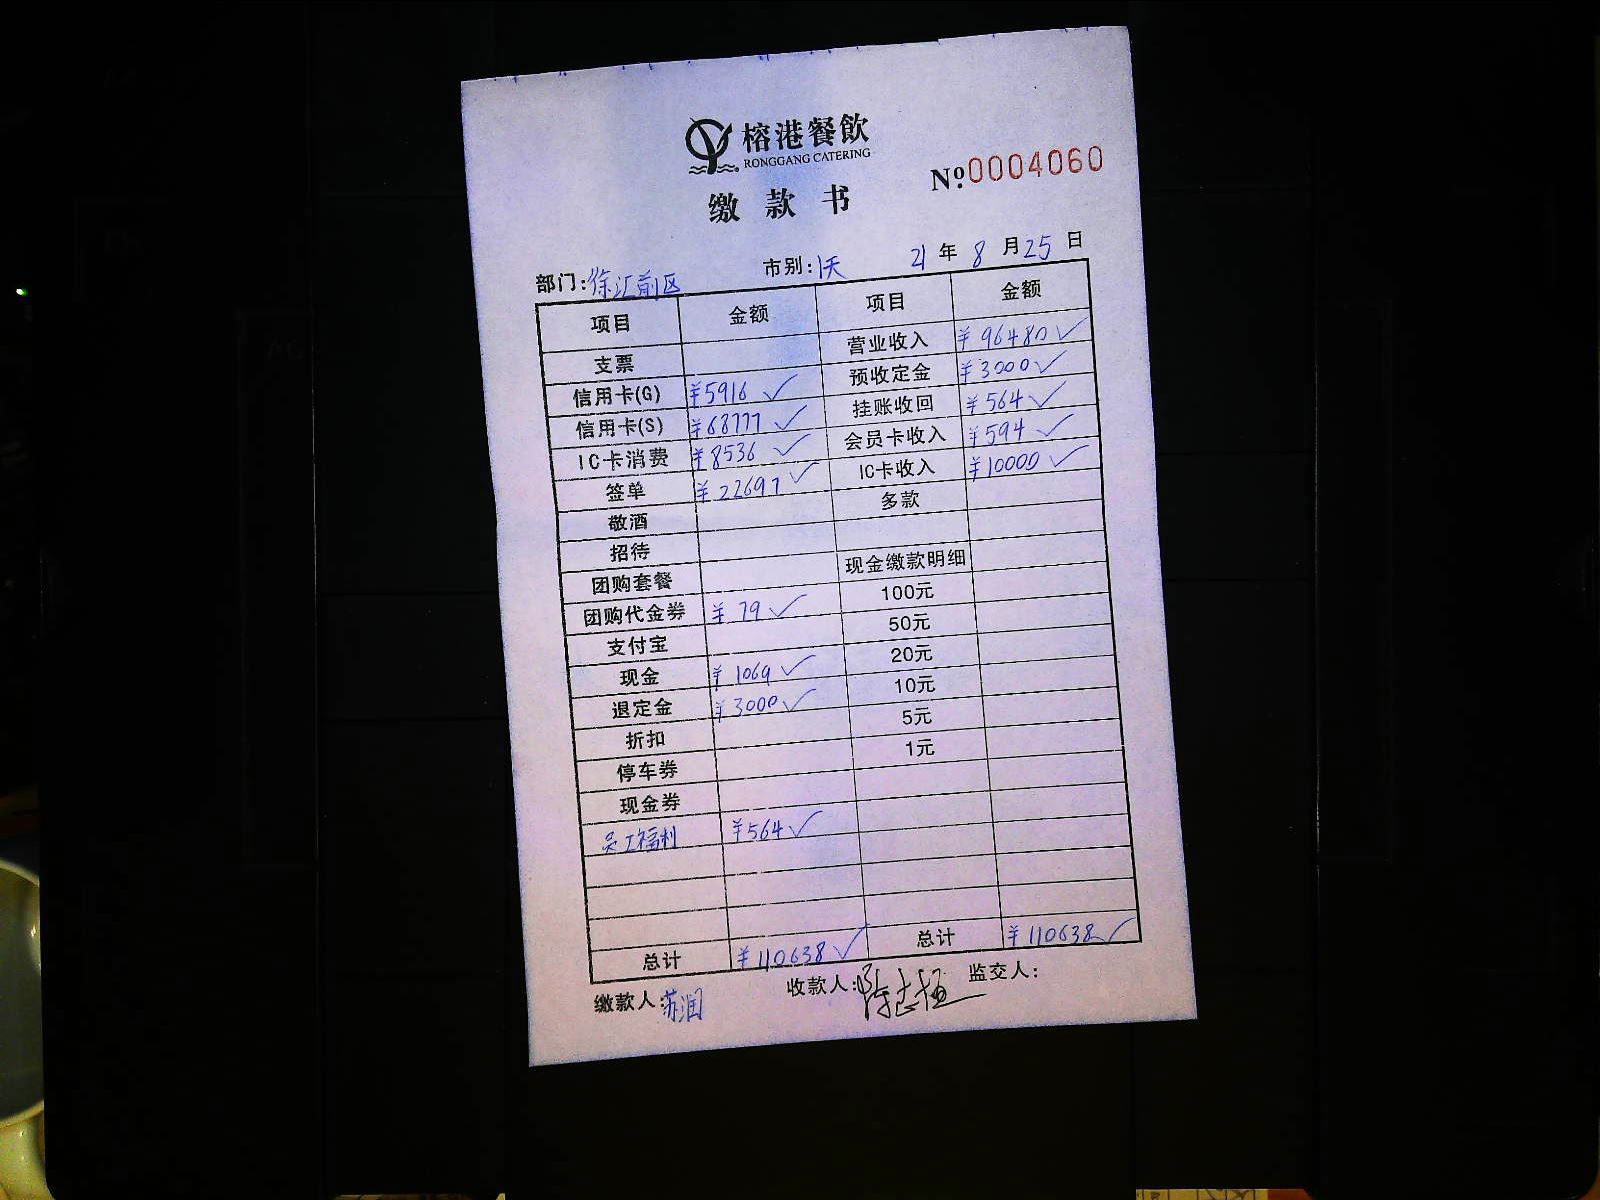 榕港餐飲
RONGGANG CATERING
缴款书
Nº:0004060
部门:徐汇前区 市别:1天 21年8月25日
项目 金额 项目 金额
支票 营业收入 ¥96480✓
信用卡(G) ¥5916✓ 预收定金 ¥3000✓
信用卡(S) ¥68777✓ 挂账收回 ¥564✓
IC卡消费 ¥8536✓ 会员卡收入 ¥594✓
签单 ¥22697✓ IC卡收入 ¥10000✓
敬酒 多款
招待
团购套餐 现金缴款明细
团购代金券 ¥79✓ 100元
支付宝 50元
现金 ¥1069✓ 20元
退定金 ¥3000✓ 10元
折扣 5元
停车券 1元
现金券
员工福利 ¥564✓
总计 ¥110638✓ 总计 ¥110638✓
缴款人:苏润 收款人: 监交人: